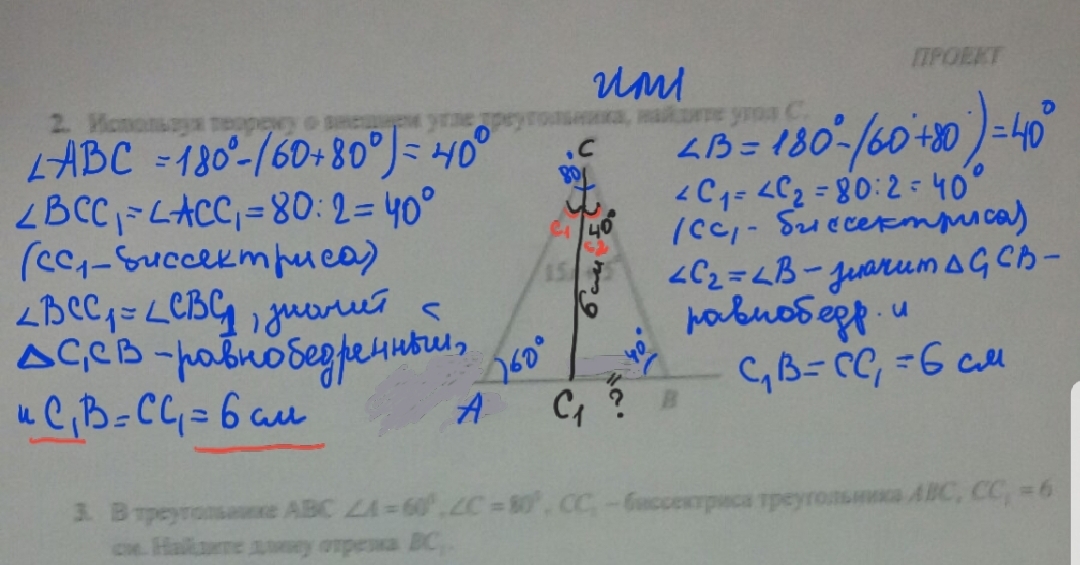 ПРОЕКТ
или
2. Используя теорему о внешнем угле треугольника, найдите угол C.
∠ABC = 180°-(60+80°) = 40°
∠BCC₁ = ∠ACC₁ = 80:2 = 40°
(CC₁ - биссектриса)
∠BCC₁ = ∠CBC₁, значит
△C₁CB - равнобедренный,
и C₁B = CC₁ = 6 см
C
80°
C1
40°
C2
6 см
60°
40°
A
C₁
?
B
∠B = 180°-(60°+80°) = 40°
∠C₁ = ∠C₂ = 80:2 = 40°
(CC₁ - биссектриса)
∠C₂ = ∠B - значит △C₁CB -
равнобедр. и
C₁B = CC₁ = 6 см
3. В треугольнике ABC ∠A = 60°, ∠C = 80°, CC₁ – биссектриса треугольника ABC, CC₁ = 6
см. Найдите длину отрезка BC₁.